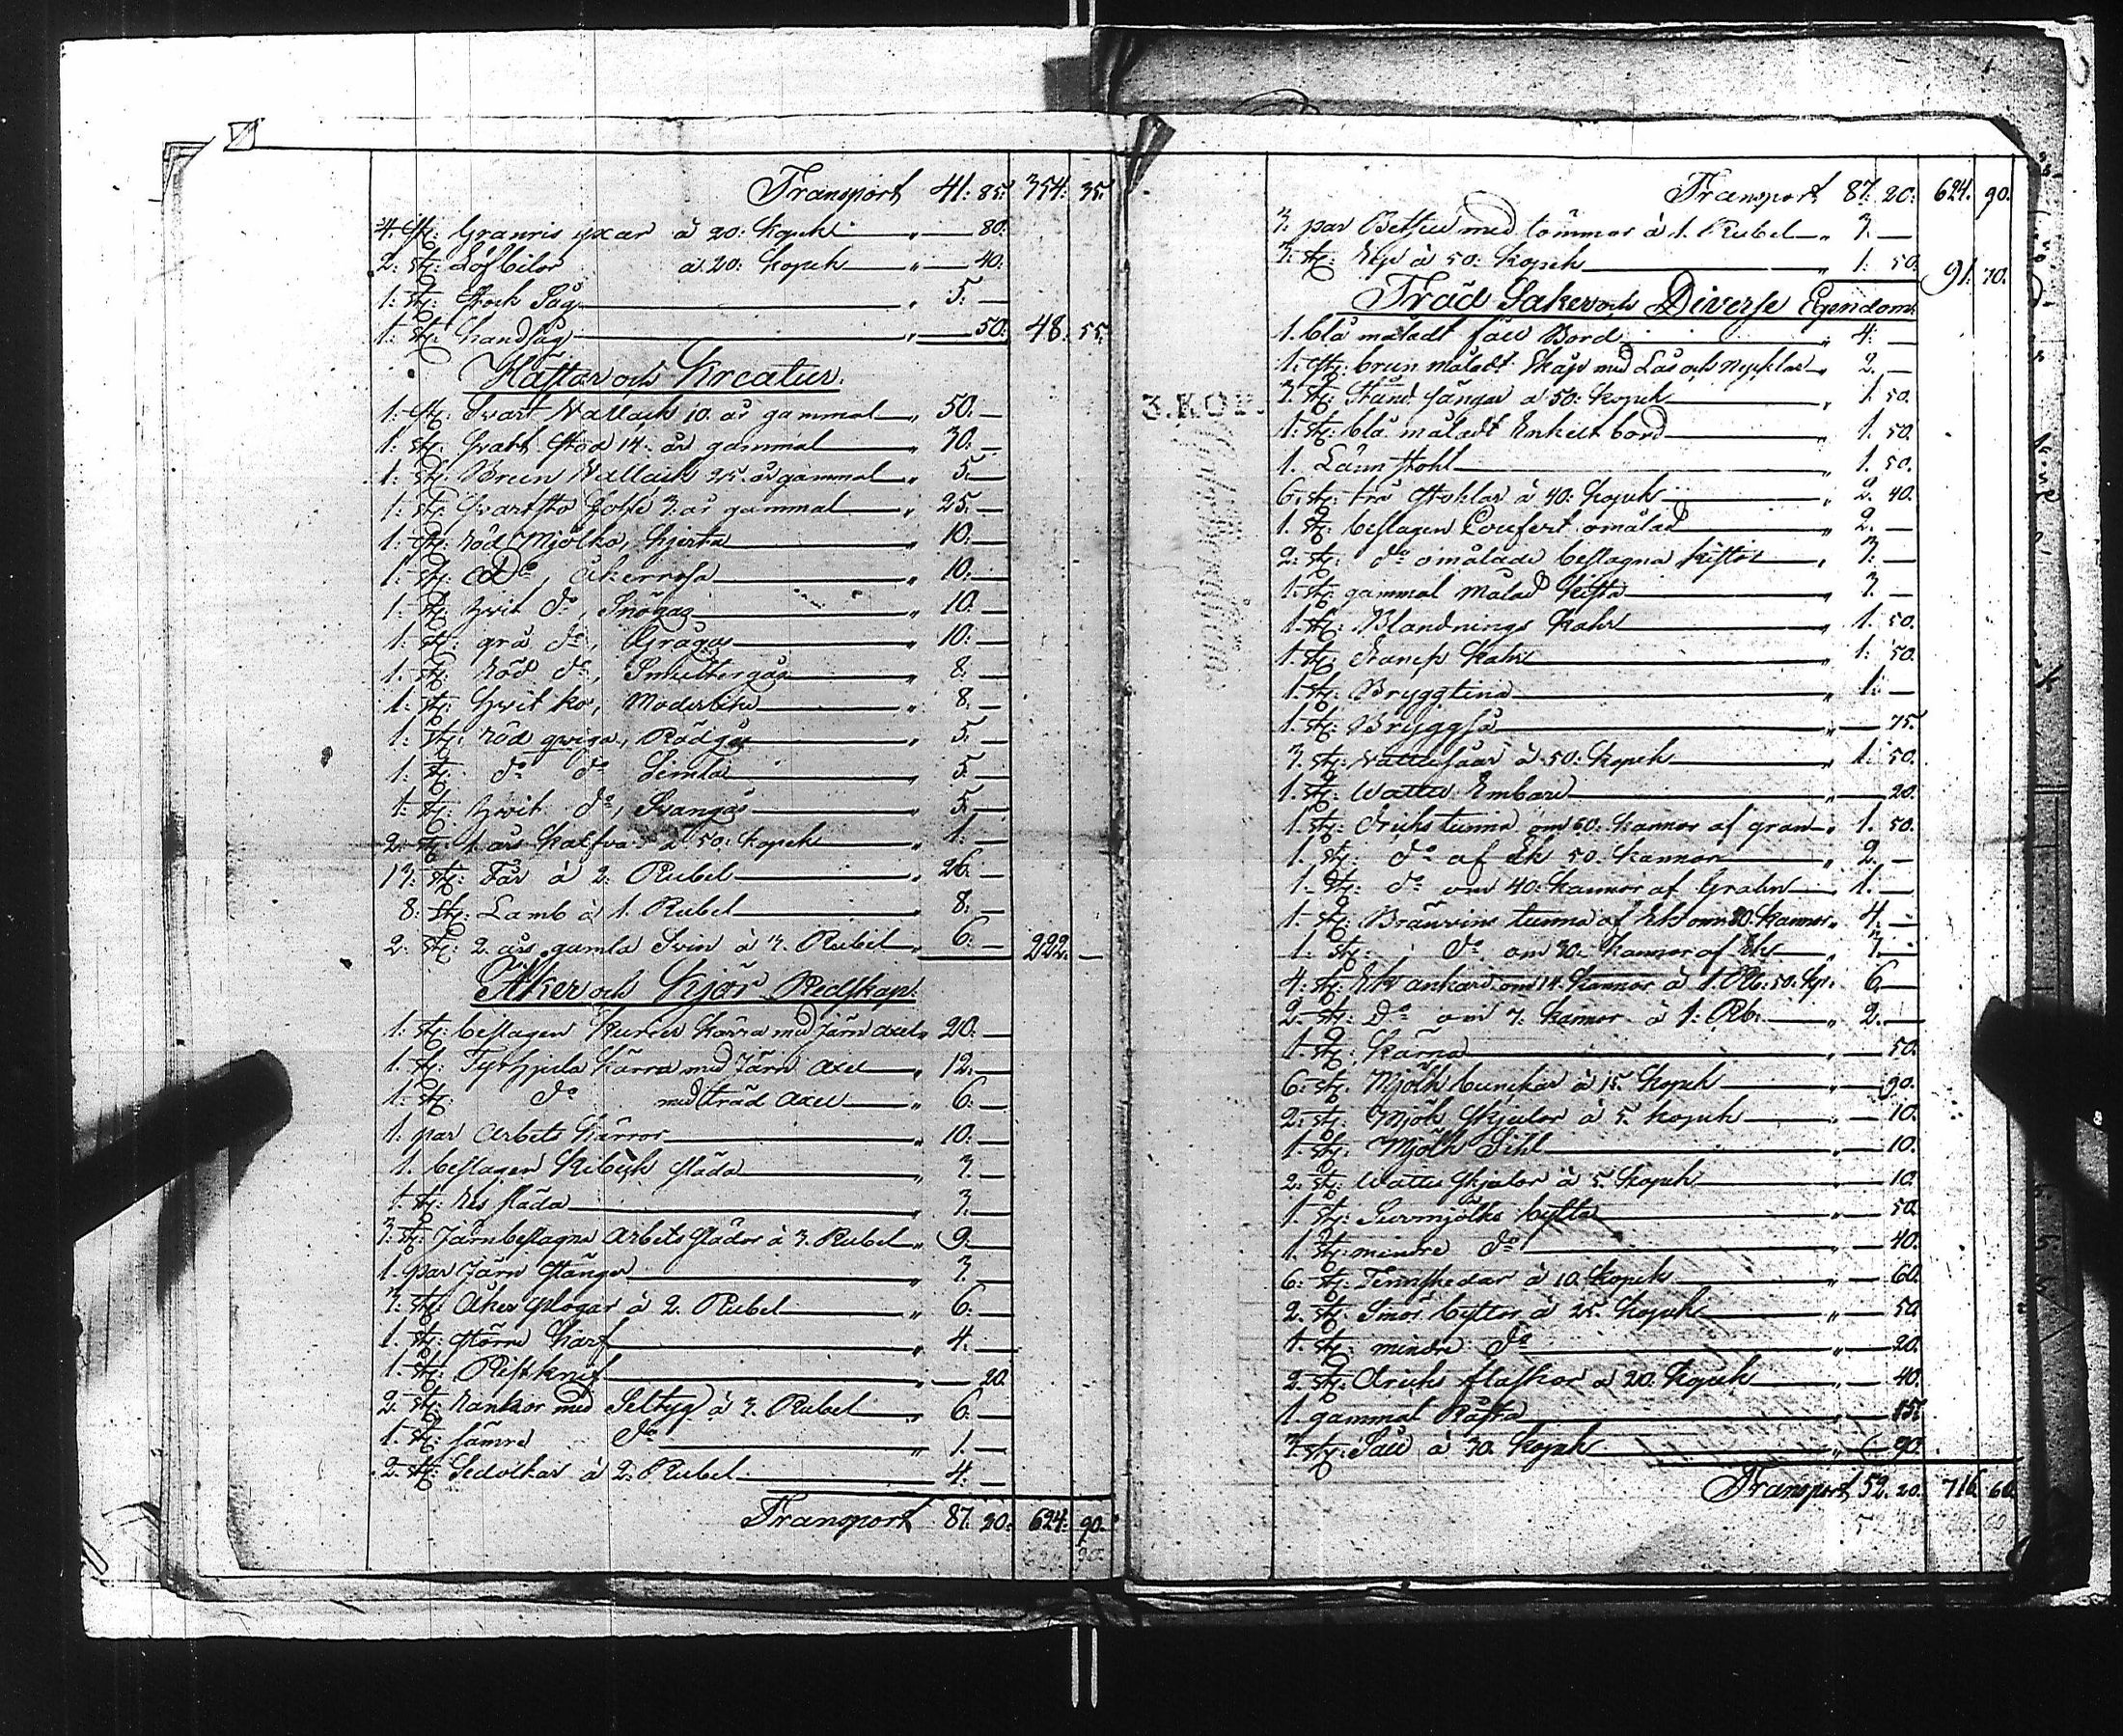 Transport 41: 85. 354: 35.
4. stj: Granris yxar à 20: Kopek " — 80.
2. stj: Löfbilor à 20: Kopek " — 40.
1: stj: Stock Såg " 5: —
1: stj: Handsåg " — 50. 48. 55.
Hästar och Kreatur.
1: stj: Svart Vallack 10. år gammal " 50. —
1: stj: Svart Stod 14. år gammal " 30. —
1: stj: Brun Vallack 25. år gammal " 5. —
1: stj: Svart Sto 3. år gammal " 25. —
1: stj: röd Mjölko, Hjerta " 10. —
1: stj: Do, Åkerrosa " 10. —
1: stj: hvit do, Snögås " 10. —
1: stj: grå do, Grågås " 10: —
1: stj: röd do, Smultergås " 8: —
1: stj: hvit ko, " 8. —
1: stj: röd qviga, Rödgås " 5. —
1: stj: do do Simla " 5. —
1: stj: hvit do, Svangås " 5. —
2: stj: 1. års Kalfvar à 50: Kopek " 1: —
13: stj: Får à 2: Rubel " 26. —
8: stj: Lamb à 1. Rubel " 8: —
2: stj: 2. års gamla Svin à 3. Rubel " 6: — 222. —
Åker och Kjör Redskap.
1: stj: beslagen Kurer Kärra med Järn axel " 20. —
1: stj: Fyrhjula Kärra med Järn axel " 12: —
1: stj: do med träd axel " 6: —
1. par Arbets Kärror " 10: —
1. beslagen släda " 3. —
1. stj: Res släda " 3. —
3: stj: Järnbeslagna Arbets Slädor à 3. Rubel " 9: —
1. par Järn Stänger " 3. —
3: stj: Åker plogar à 2. Rubel " 6: —
1. stj: större Harf " 4: —
1. stj: Ristknif " — 20.
2. stj: Rankor med Seltyg à 3. Rubel " 6: —
1: stj: sämre do " 1. —
2. stj: Sedolkar à 2. Rubel 4: —
Transport 87. 20. 624. 90.
Transport 87. 20. 624. 90.
3. par Betsel med tömmar à 1. Rubel " 3. —
3. stj: Rep à 50: Kopek " 1. 50. 91. 70.
Träd Saker och Diverse Egendom.
1. blå måladt fäll Bord " 4: —
1. stj: brun måladt Skåp med Lås och nycklar " 2. —
3 stj: Stånd sängar à 50: Kopek " 1. 50.
1: stj: blå måladt Enkelt bord " 1. 50.
1. Länn stohl " 1. 50.
6. stj: trä Stohlar à 40: Kopek " 2. 40.
1. stj: beslagen Coufert omålad " 2. —
2: stj: do omålade beslagna Kistor " 3. —
1. stj: gammal målad Kista " 3. —
1. stj: Blandnings Kahr " 1. 50.
1. stj: Kahr " 1. 50.
1. stj: Bryggtina " 1. —
1. stj: Bryggså " — 75.
3. stj: vattusåar à 50: Kopek " 1. 50.
1. stj: Wattu Embare " — 20.
1. stj: Driks tunna om 60. kannor af gran " 1. 50.
1. stj: do af Ek 50. kannor " 2. —
1. stj: do om 40: kannor af Grahn " 1. —
1. stj: Bränvins tunna af Ek om 80. kannor " 4. —
1. stj: do om 30. kannor af Ek " 3. —
4. stj: Ek ankare om 14. kannor à 1. Rb: 50. Kp: 6. —
2. stj: Do om 7. kannor à 1: Rb: " 2. —
1. stj: Kärna " — 50.
6: stj: Mjölk bunckar à 15. Kopek " — 90.
2. stj: Mjölk Skjulor à 5. Kopek " — 10.
1. stj: Mjölk Sihl " — 10.
2. stj: Wattu Skjulor à 5. Kopek " — 10.
1. stj: Surmjölks bytta " — 50.
1. stj: mindre do " — 40.
6: stj: Tennskedar à 10. Kopek " — 60.
2. stj: Smör byttor à 25. Kopek " — 50.
1. stj: mindre do " — 20.
2. stj: Dricks flaskor à 20. Kopek " — 40.
1. gammal " — 15.
3. stj: Såll à 30. Kopek " — 90.
Transport 52. 20. 716. 60.
3. KOP.